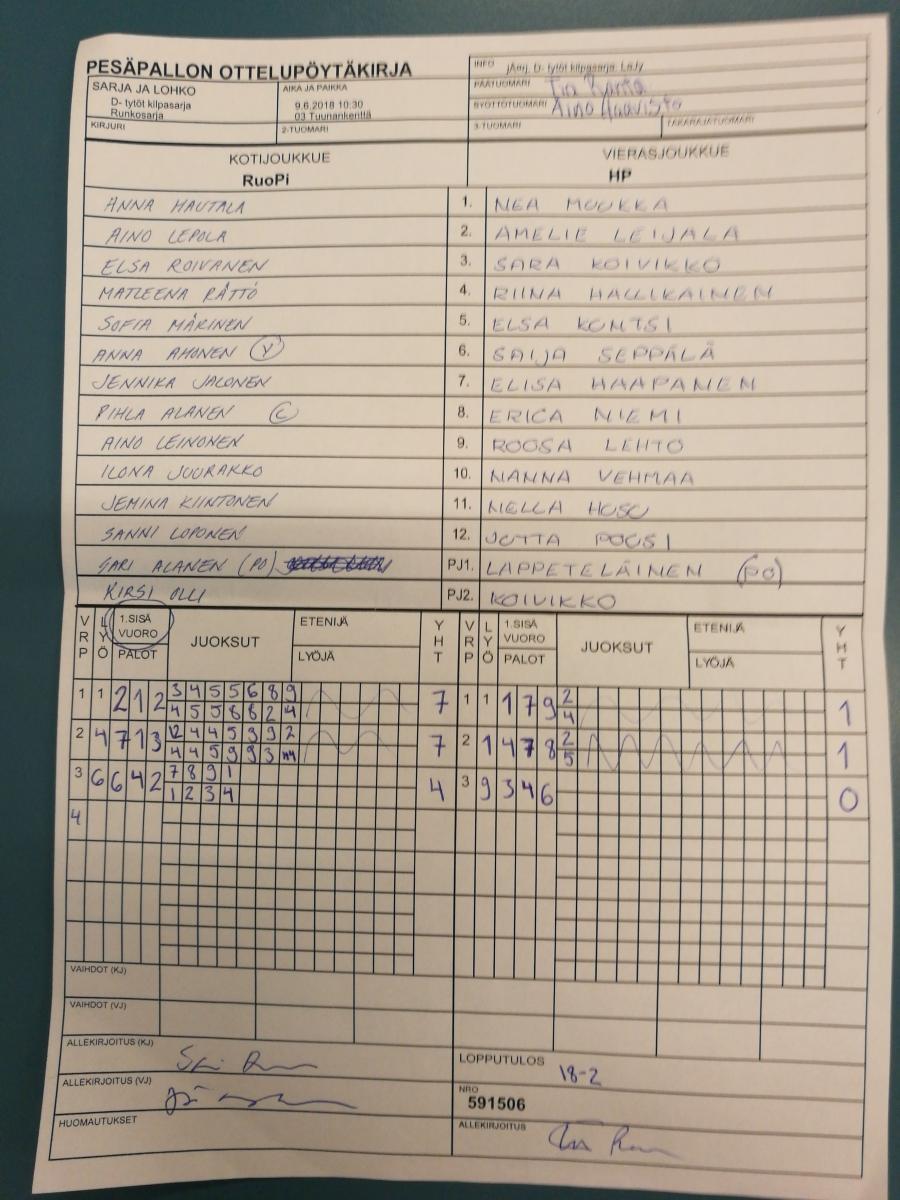 PESÄPALLON OTTELUPÖYTÄKIRJA
INFO jAmj, D- tytöt kilpasarja, LaJy
SARJA JA LOHKO
D- tytöt kilpasarja
Runkosarja
AIKA JA PAIKKA
9.6.2018 10:30
03 Tuunankenttä
PÄÄTUOMARI Tia Ranta
SYÖTTÖTUOMARI Aino Haavisto
KIRJURI 2-TUOMARI 3-TUOMARI TAKARAJATUOMARI
KOTIJOUKKUE VIERASJOUKKUE
RuoPi HP
ANNA HAUTALA 1. NEA MUUKKA
AINO LEPOLA 2. AMELIE LEIJALA
ELSA ROIVANEN 3. SARA KOIVIKKO
MATLEENA RÄTTÖ 4. RIINA HALLIKAINEN
SOFIA MÄKINEN 5. ELSA KONTSI
ANNA AHONEN (V) 6. SAIJA SEPPÄLÄ
JENNIKA JALONEN 7. ELISA HAAPANEN
PIHLA ALANEN (C) 8. ERICA NIEMI
AINO LEINONEN 9. ROOSA LEHTO
ILONA JUURAKKO 10. NANNA VEHMAA
JEMINA KIINTONEN 11. NELLA
SANNI LOPONEN 12. JUTTA POOSI
SARI ALANEN (PO) PJ1. LAPPETELÄINEN (PO)
KIRSI OLLI PJ2. KOIVIKKO
VRP LYÖ 1.SISÄ VUORO PALOT JUOKSUT ETENIJÄ LYÖJÄ YHT VRP LYÖ 1.SISÄ VUORO PALOT JUOKSUT ETENIJÄ LYÖJÄ YHT
1 1 2 1 2 3 4 5 5 6 8 9 7 1 1 1 7 9 2 1
4 5 5 8 8 2 4 4
2 4 7 1 3 12 4 4 5 9 9 2 7 2 1 4 7 8 2 1
4 4 5 9 9 3 5
3 6 6 4 2 7 8 9 1 4 3 9 3 4 6 0
1 2 3 4
4
VAIHDOT (KJ)
VAIHDOT (VJ)
ALLEKIRJOITUS (KJ)
LOPPUTULOS 18-2
ALLEKIRJOITUS (VJ)
NRO
591506
HUOMAUTUKSET
ALLEKIRJOITUS